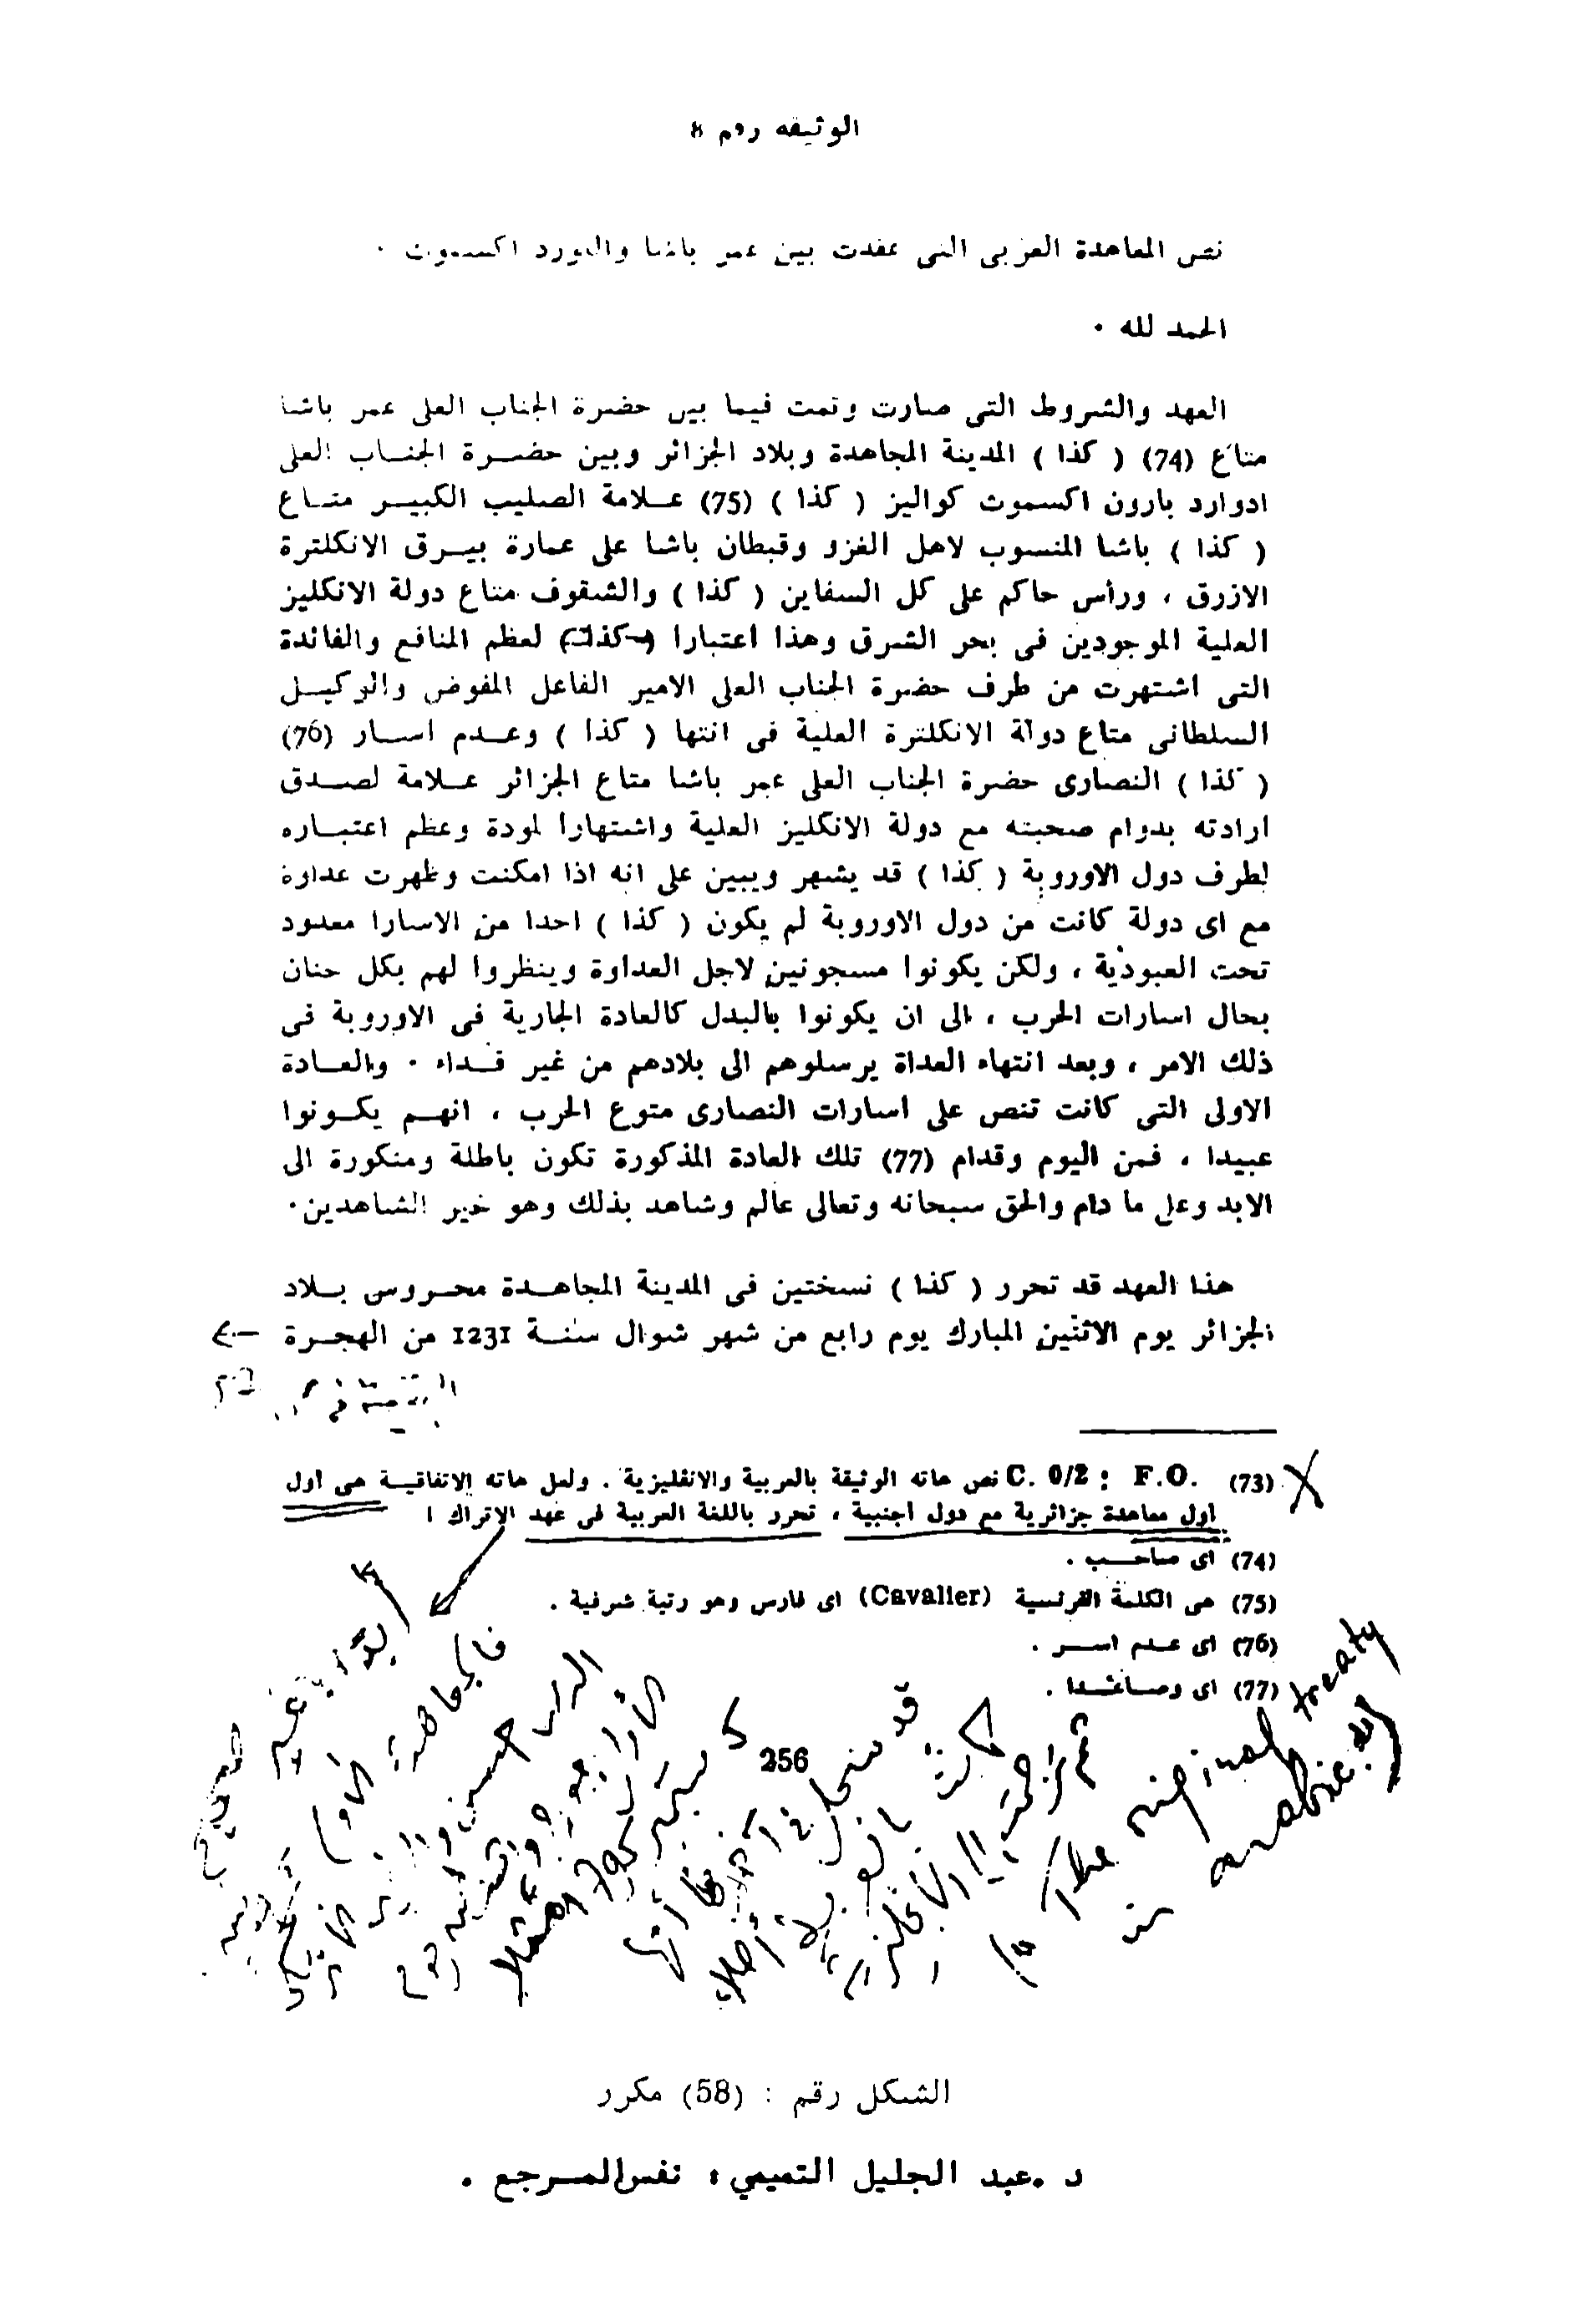 الوثيقه رقم 8
نص المعاهدة العربى التى عقدت بين عمر باشا واللورد اكسموث ·
الحمد لله ·
العهد والشروط التى صارت وتمت فيما بين حضرة الجناب العلى عمر باشا
متاع (74) ( كذا ) المدينة المجاهدة وبلاد الجزائر وبين حضـرة الجنـاب العلى
ادوارد بارون اكسموث كواليز ( كذا ) (75) عـلامة الصليب الكبيـر متـاع
( كذا ) باشا المنسوب لاهل الغزو وقبطان باشا على عمارة بيـرق الانكلترة
الازرق ، ورأس حاكم على كل السفاين ( كذا ) والشقوف متاع دولة الانكليز
العلية الموجودين فى بحر الشرق وهذا اعتبارا ( كذا ) لعظم المنافع والفائدة
التى اشتهرت من طرف حضرة الجناب العلى الامير الفاعل المفوض والوكيـل
السلطانى متاع دولة الانكلترة العلية فى انتها ( كذا ) وعـدم اسـار (76)
( كذا ) النصارى حضرة الجناب العلى عمر باشا متاع الجزائر عـلامة لصـدق
ارادته بدوام صحبته مع دولة الانكليز العلية واشتهارا لمودة وعظم اعتبـاره
لطرف دول الاوروبة ( كذا ) قد يشهر ويبين على انه اذا امكنت وظهرت عداوة
مع اى دولة كانت من دول الاوروبة لم يكون ( كذا ) احدا من الاسارا معدود
تحت العبوذية ، ولكن يكونوا مسجونين لاجل العداوة وينظروا لهم بكل حنان
بحال اسارات الحرب ، الى ان يكونوا بالبدل كالعادة الجارية فى الاوروبة فى
ذلك الامر ، وبعد انتهاء العداة يرسلوهم الى بلادهم من غير فـداء · والعـادة
الاولى التى كانت تنص على اسارات النصارى متوع الحرب ، انهـم يكـونوا
عبيدا ، فمن اليوم وقدام (77) تلك العادة المذكورة تكون باطلة ومنكورة الى
الابد وعلى ما دام والحق سبحانه وتعالى عالم وشاهد بذلك وهو خير الشاهدين·
هذا العهد قد تحرر ( كذا ) نسختين فى المدينة المجاهـدة محـروس بـلاد
الجزائر يوم الاثنين المبارك يوم رابع من شهر شوال سنـة 1231 من الهجـرة
(73) F.O. : C. 0/2 نص هاته الوثيقة بالعربية والانقليزية . ولعل هاته الاتفاقيـة هى اول
اول معاهدة جزائرية مع دول اجنبية ، تحرر باللغة العربية فى عهد الاتراك !
(74) اى صاحـب .
(75) هى الكلمة الفرنسية (Cavalier) اى فارس وهو رتبة شرفية .
(76) اى عـدم اسـر .
(77) اى وصـاعـدا .
256
قد سجل
كانت بالعربية أصلا
ثم ترجمت إلى الانجليزية
(The original treaty
in arabic)
الشكل رقم : (58) مكرر
د .عبد الجليل التميمي، نفس المـرجع .